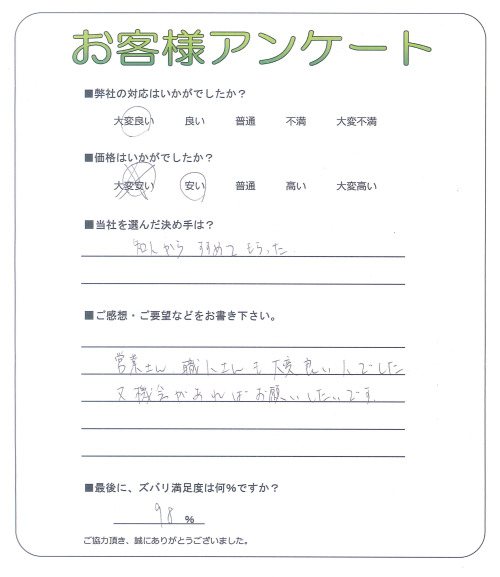 お客様アンケート
■弊社の対応はいかがでしたか？
大変良い 良い 普通 不満 大変不満
■価格はいかがでしたか？
大変安い 安い 普通 高い 大変高い
■当社を選んだ決め手は？
知人から すすめて もらった
■ご感想・ご要望などをお書き下さい。
営業さん 職人さんも 大変良い人でした
又機会があればお願いしたいです。
■最後に、ズバリ満足度は何％ですか？
98 ％
ご協力頂き、誠にありがとうございました。